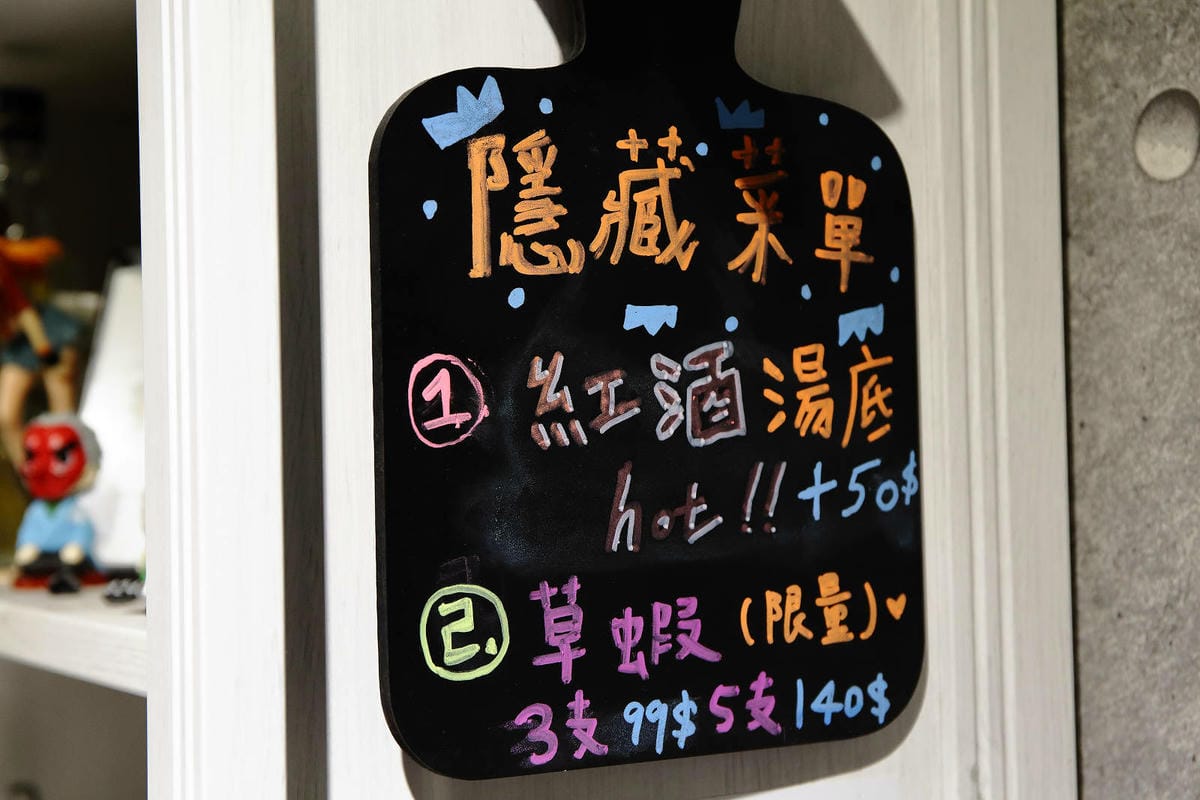 隱藏菜單
① 紅酒湯底
hot !! +50$
② 草蝦 (限量)♥
3支 99$ 5支 140$